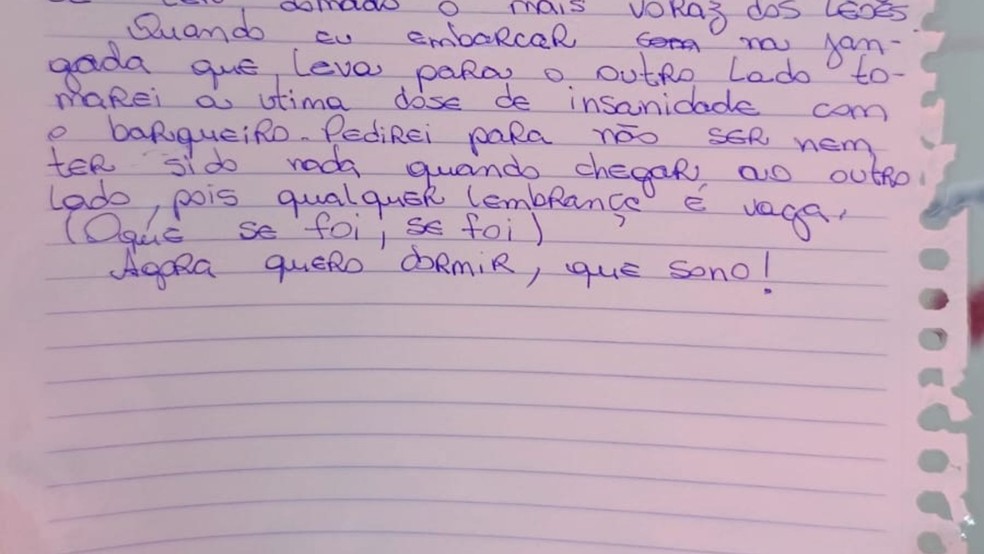 domado o mais voraz dos leões
Quando eu embarcar com na jan-
gada que leva para o outro lado to-
marei a utima dose de insanidade com
o barqueiro. Pedirei para não ser nem
ter sido nada quando chegar ao outro
lado, pois qualquer lembrança é vaga.
(Oque se foi, se foi)
Agora quero dormir, que sono!